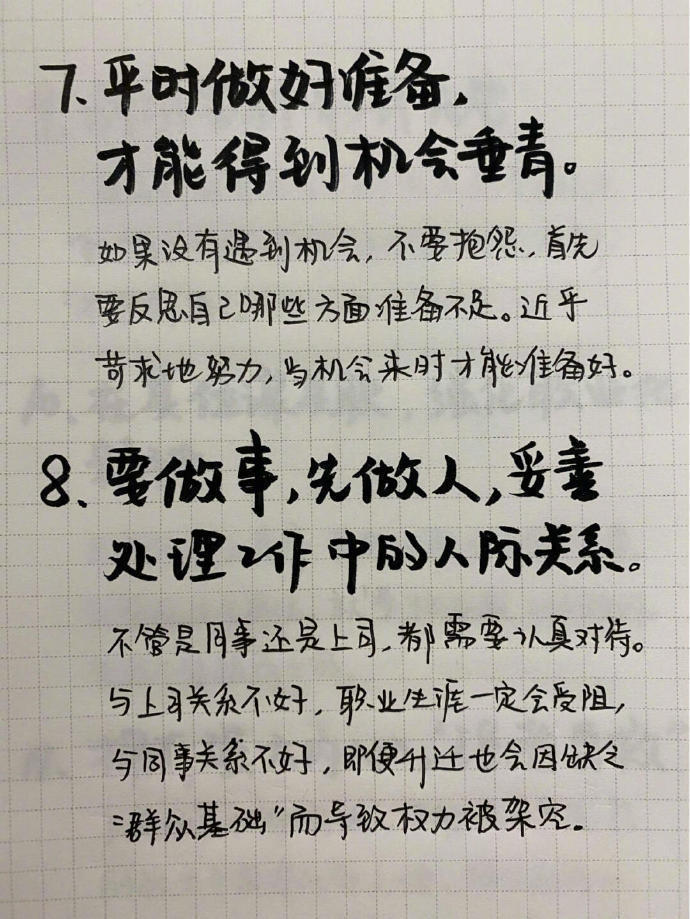 7、平时做好准备，
才能得到机会垂青。
如果没有遇到机会，不要抱怨，首先
要反思自己哪些方面准备不足。近乎
苛求地努力，当机会来时才能准备好。
8、要做事，先做人，妥善
处理工作中的人际关系。
不管是同事还是上司，都需要认真对待。
与上司关系不好，职业生涯一定会受阻，
与同事关系不好，即便升迁也会因缺乏
“群众基础”而导致权力被架空。